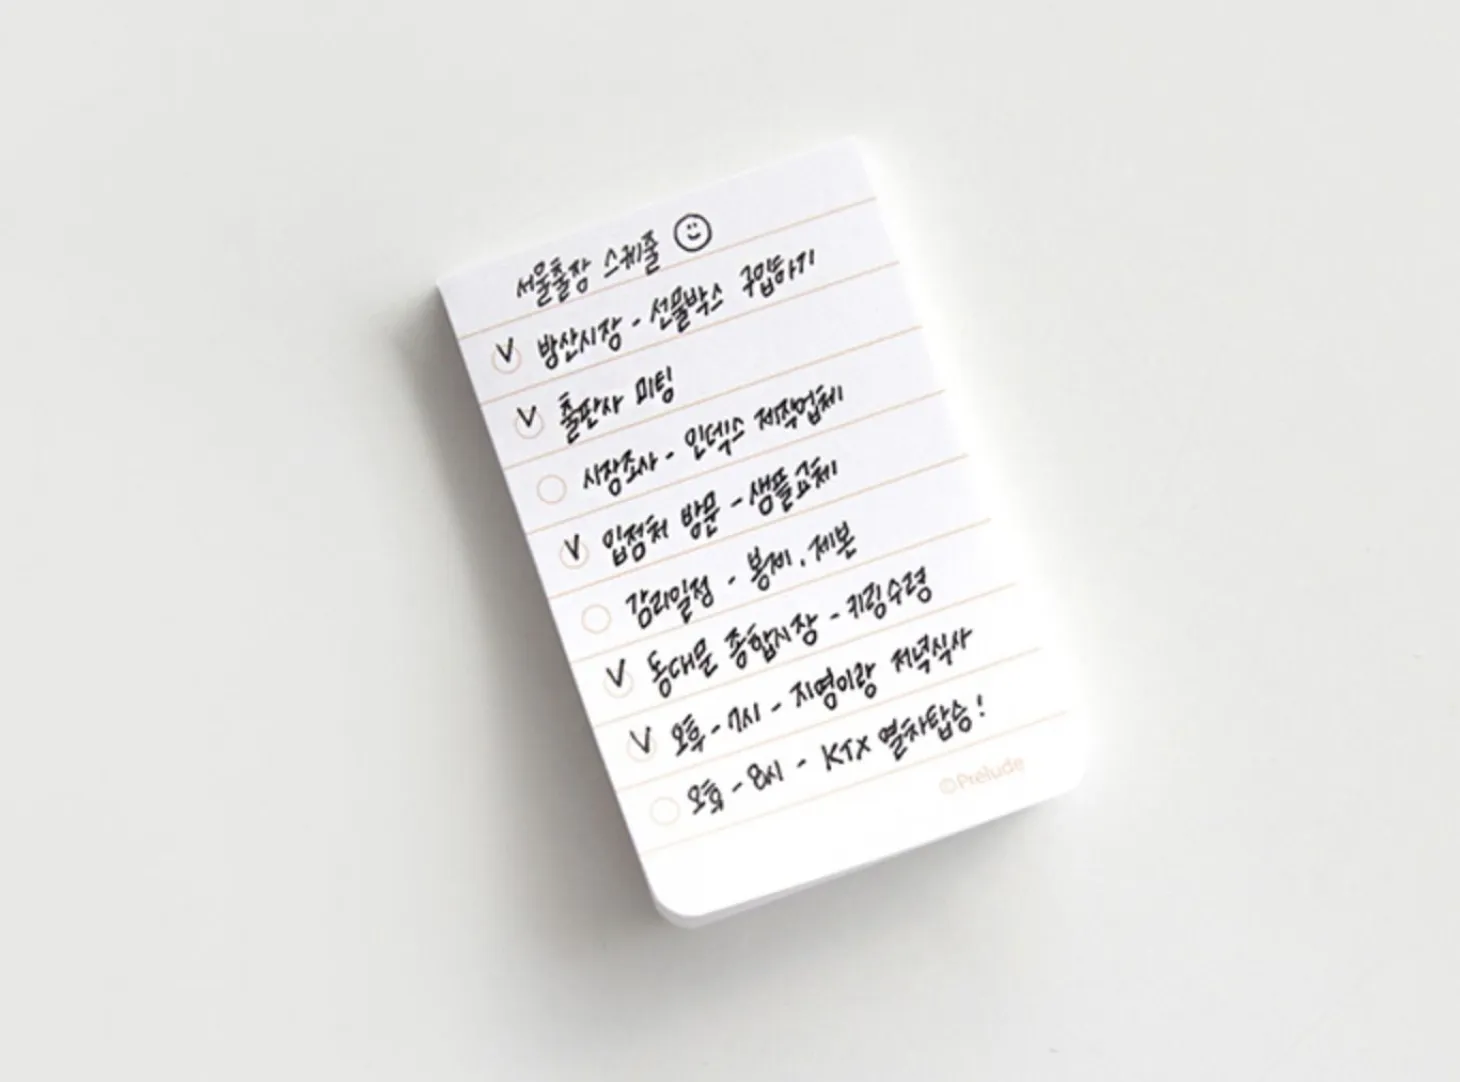 서울출장 스케줄
V 방산시장 - 선물박스 구입하기
V 출판사 미팅
시장조사 - 인덱스 제작업체
V 입점처 방문 - 샘플교체
감리일정 - 봉제, 제본
V 동대문 종합시장 - 키링수령
V 오후 - 7시 - 지영이랑 저녁식사
오후 - 8시 - KTX 열차탑승!
©Prelude